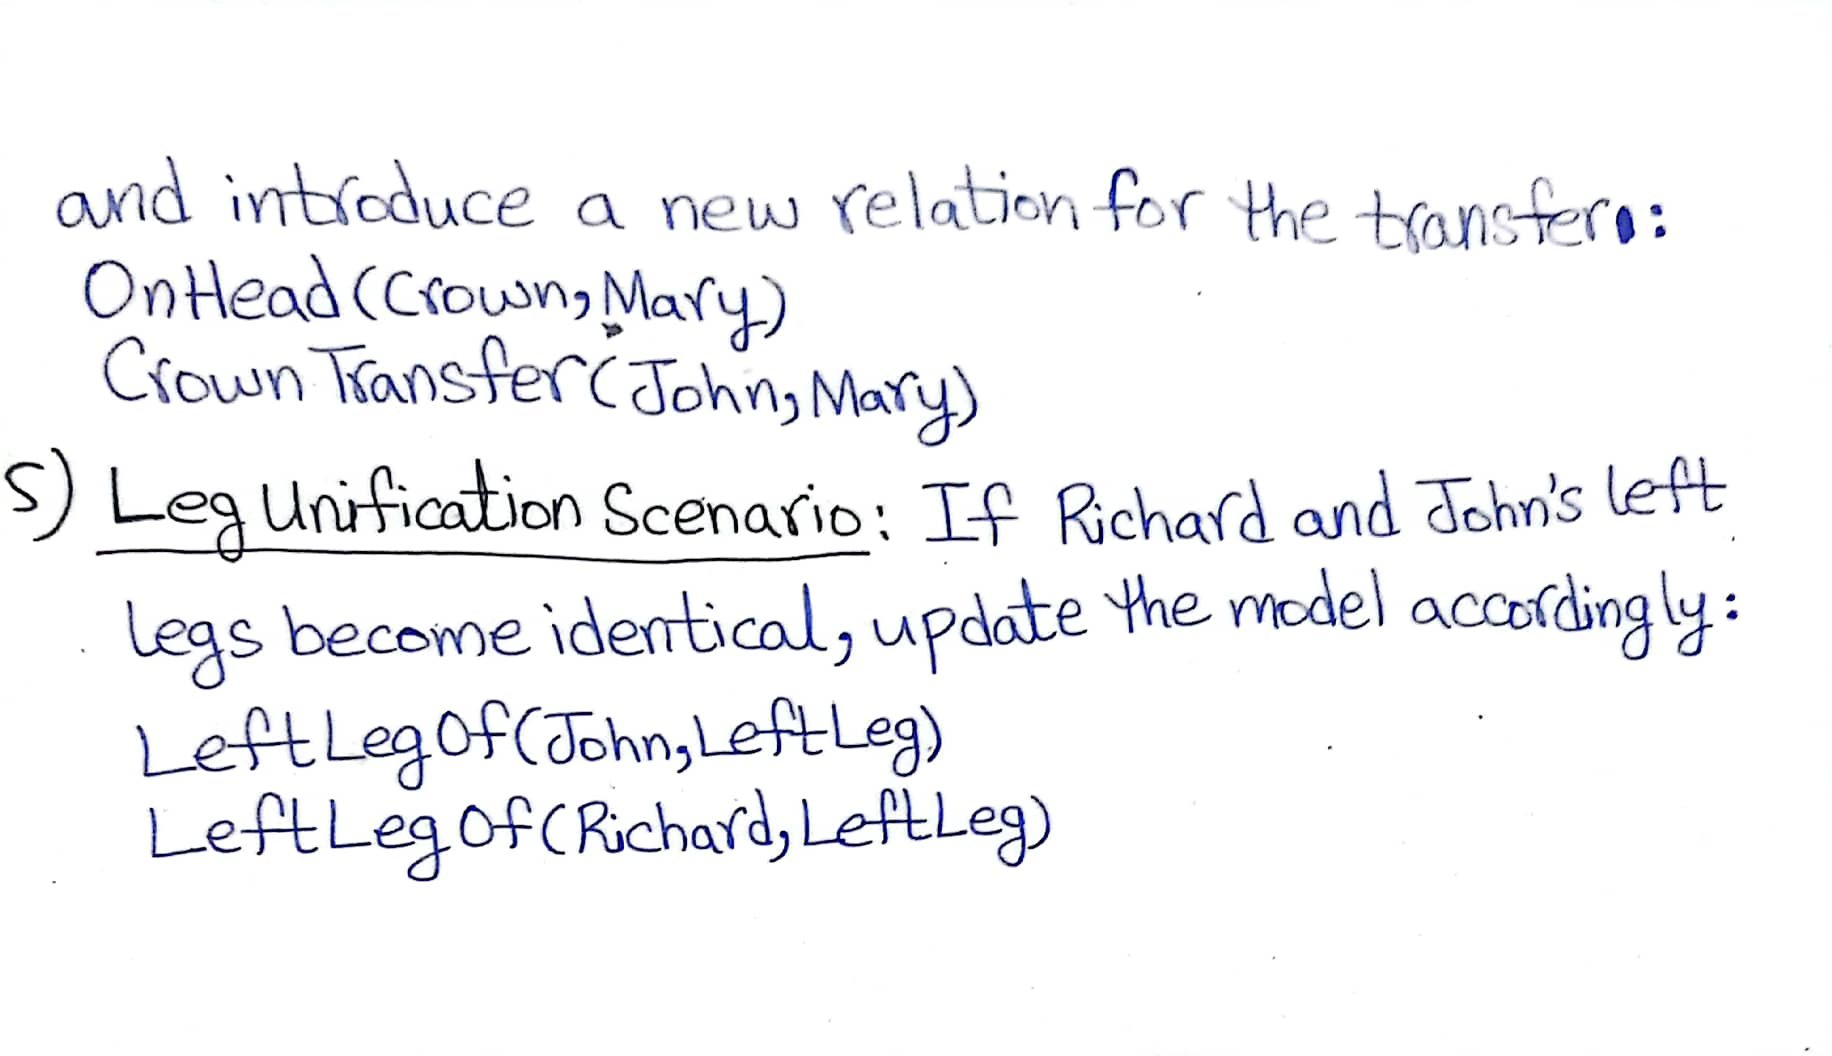 and introduce a new relation for the transfer:
OnHead(Crown, Mary)
Crown Transfer(John, Mary)
5) Leg Unification Scenario: If Richard and John's left
legs become identical, update the model accordingly:
LeftLegOf(John, LeftLeg)
LeftLegOf(Richard, LeftLeg)